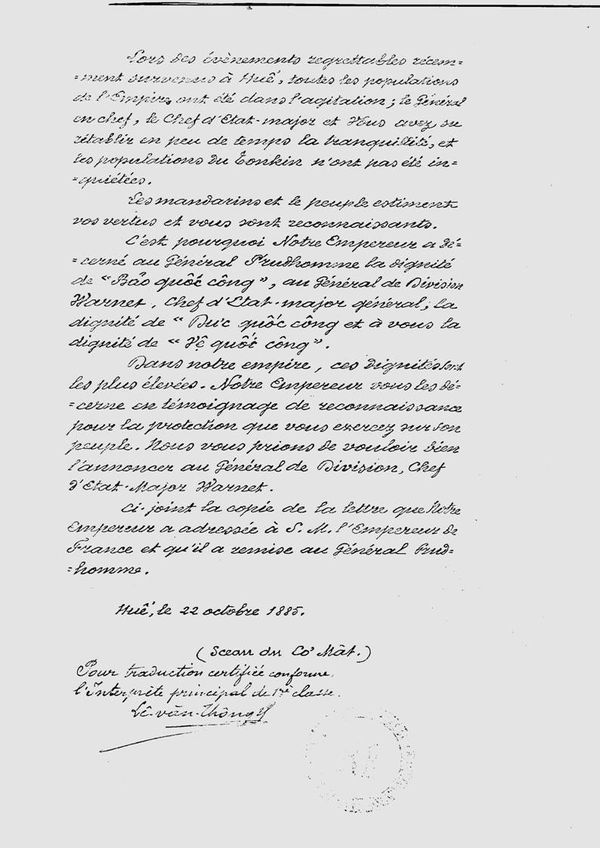 Lors des évènements regrettables récem=
=ment survenus à Huê, toutes les populations
de l'Empire, ont été dans l'agitation; le Général
en chef, le Chef d'Etat-major et Vous avez su
rétablir en peu de temps la tranquillité, et
les populations du Tonkin n'ont pas été in=
=quiétées.
Les mandarins et le peuple estiment
vos vertus et vous sont reconnaissants.
C'est pourquoi Notre Empereur a dé=
=cerné au Général Prudhomme la dignité
de "Bảo quốc công", au Général de Division
Warnet, Chef d'Etat-major général; la
dignité de "Dực quốc công et à vous la
dignité de "Vệ quốc công".
Dans notre empire, ces dignités sont
les plus élevées. Notre Empereur vous les dé=
=cerne en témoignage de reconnaissance
pour la protection que vous exercez sur son
peuple. Nous vous prions de vouloir bien
l'annoncer au Général de Division, Chef
d'Etat-Major Warnet.
Ci-joint la copie de la lettre que Notre
Empereur a adressée à S. M. l'Empereur de
France et qu'il a remise au Général Prud=
=homme.
Huê, le 22 octobre 1885.
(Sceau du Co' Mât.)
Pour traduction certifiée conforme
l'Interprète principal de 1re classe.
Lê-văn-Thông